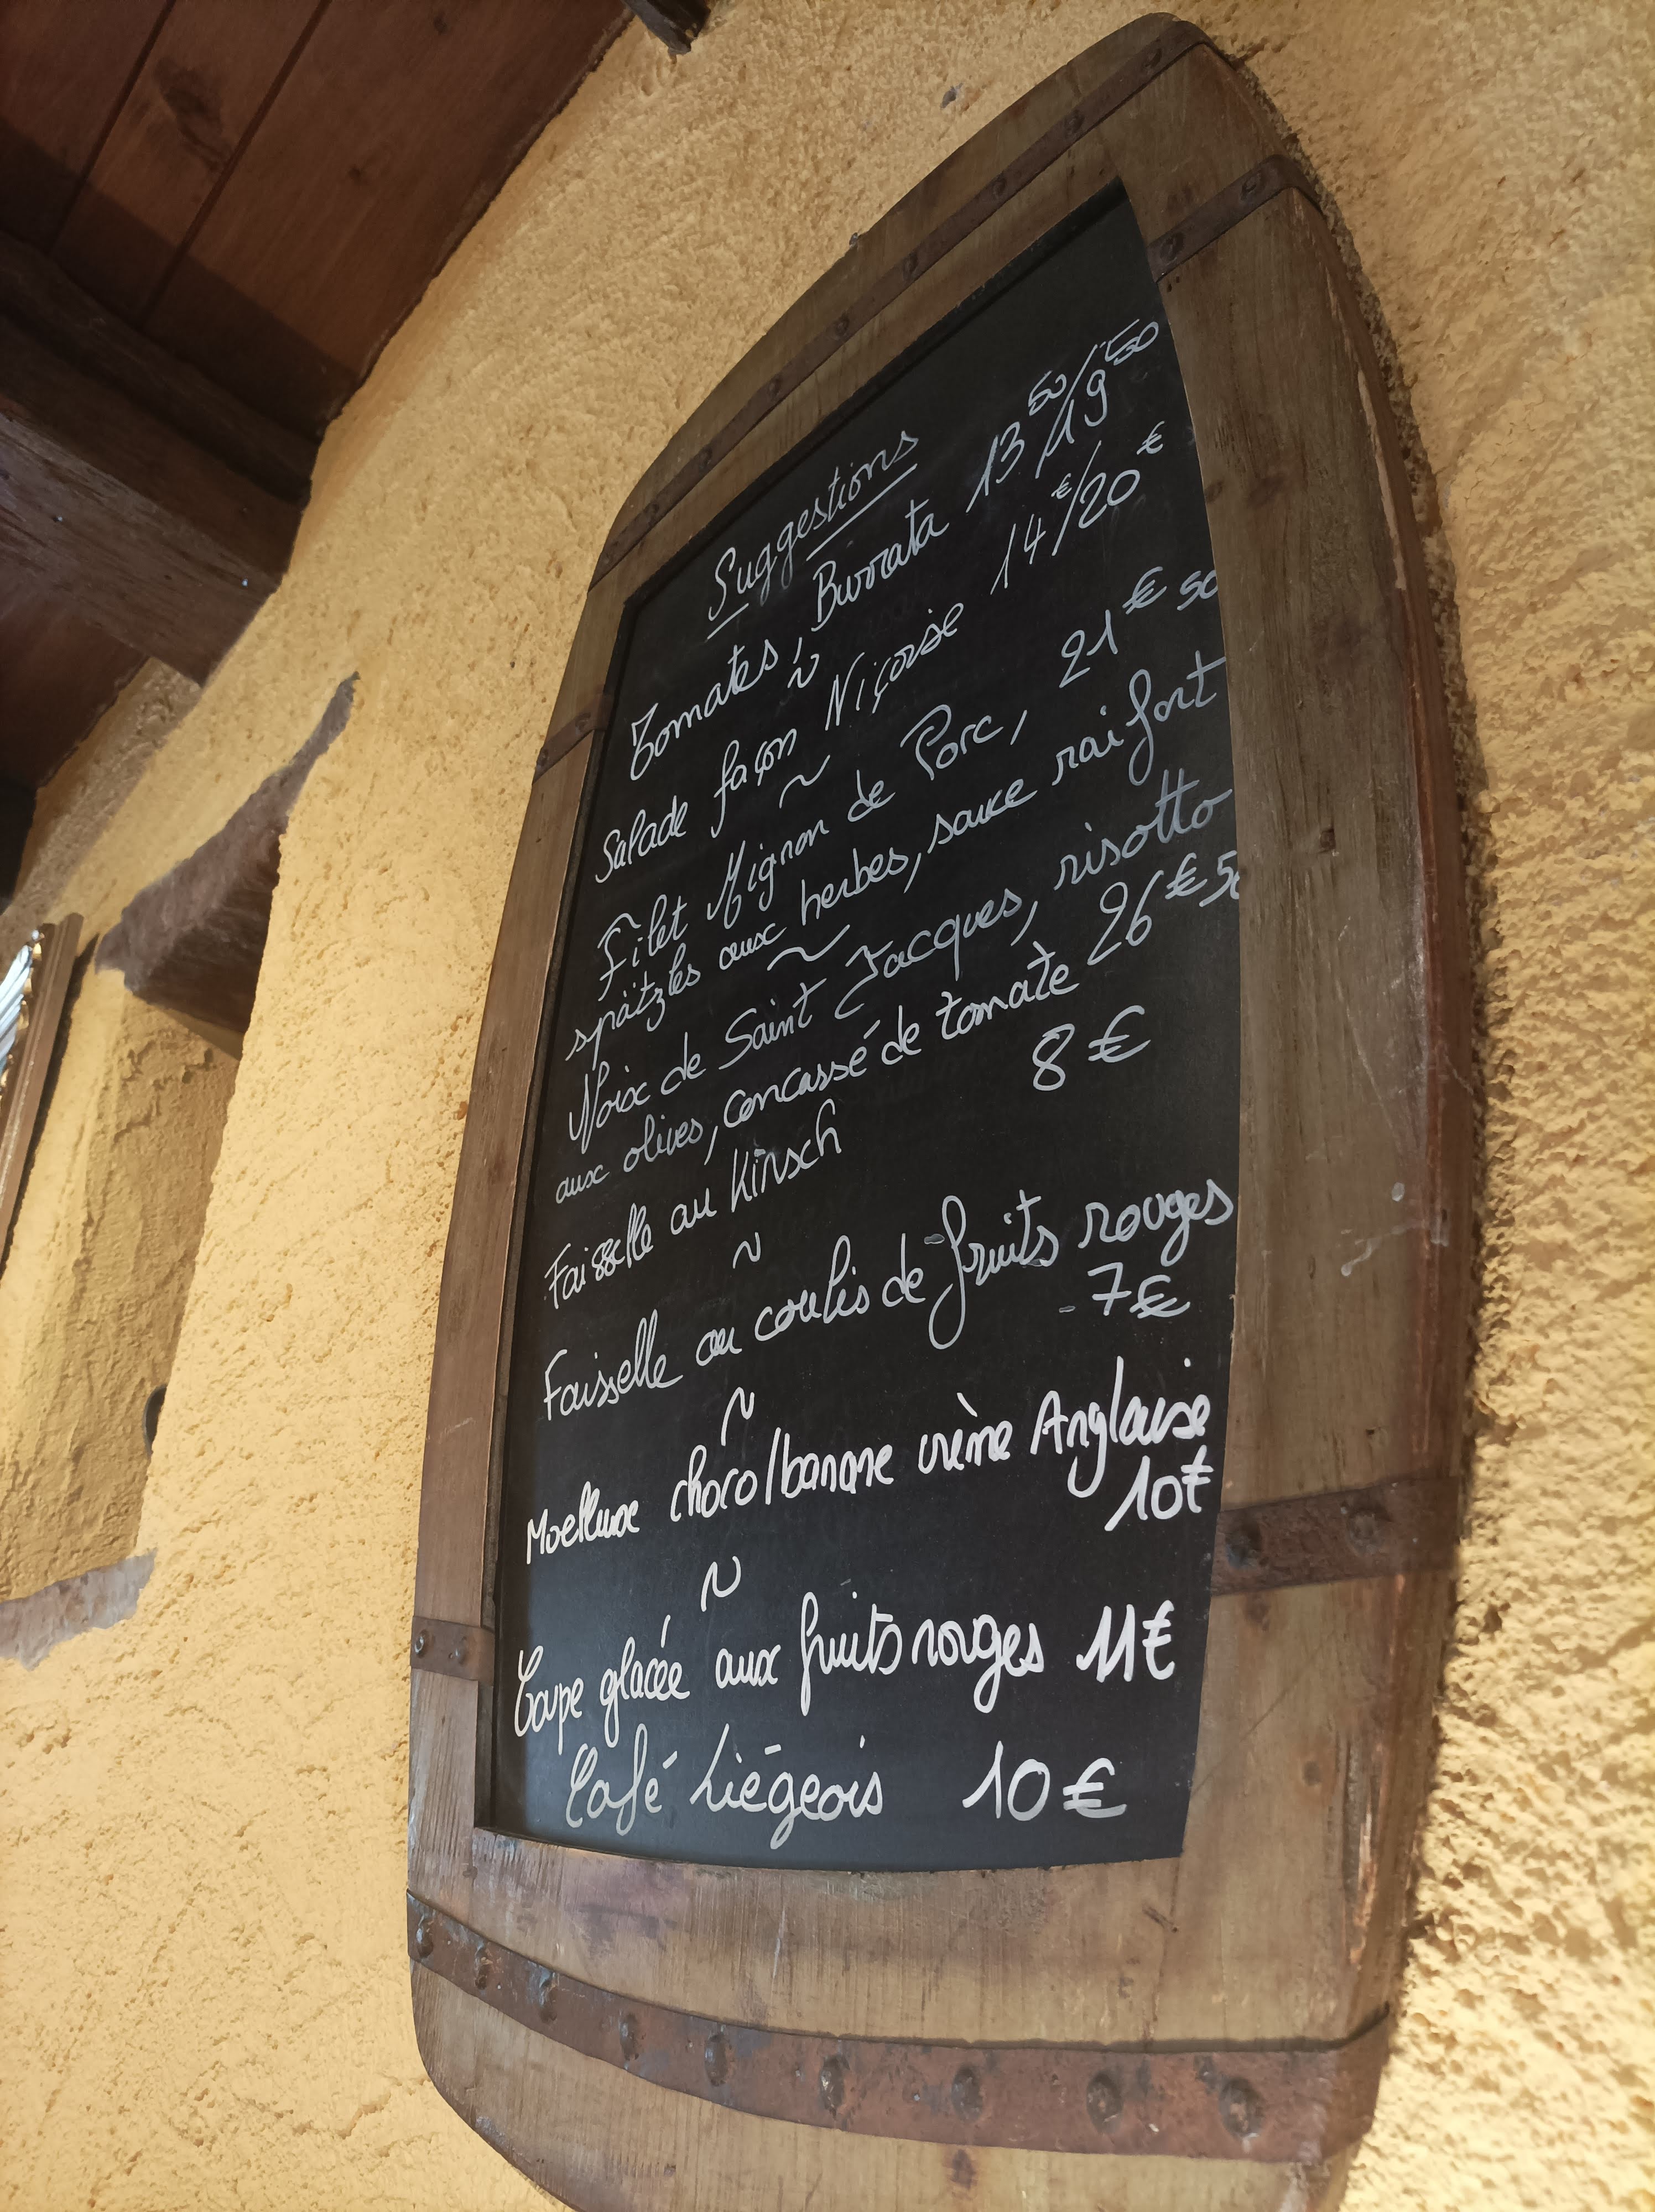 Suggestions
Tomates, Burrata 13 50/19 50
~
Salade façon Niçoise 14€/20€
~
Filet Mignon de Porc, 21€50
spätzles aux herbes, sauce raifort
~
Noix de Saint Jacques, risotto
aux olives, concassé de tomate 26€50
Faisselle au Kirsch 8€
~
Faisselle au coulis de fruits rouges
7€
~
Moelleux choco/banane crème Anglaise
10€
~
Coupe glacée aux fruits rouges 11€
Café Liégeois 10€